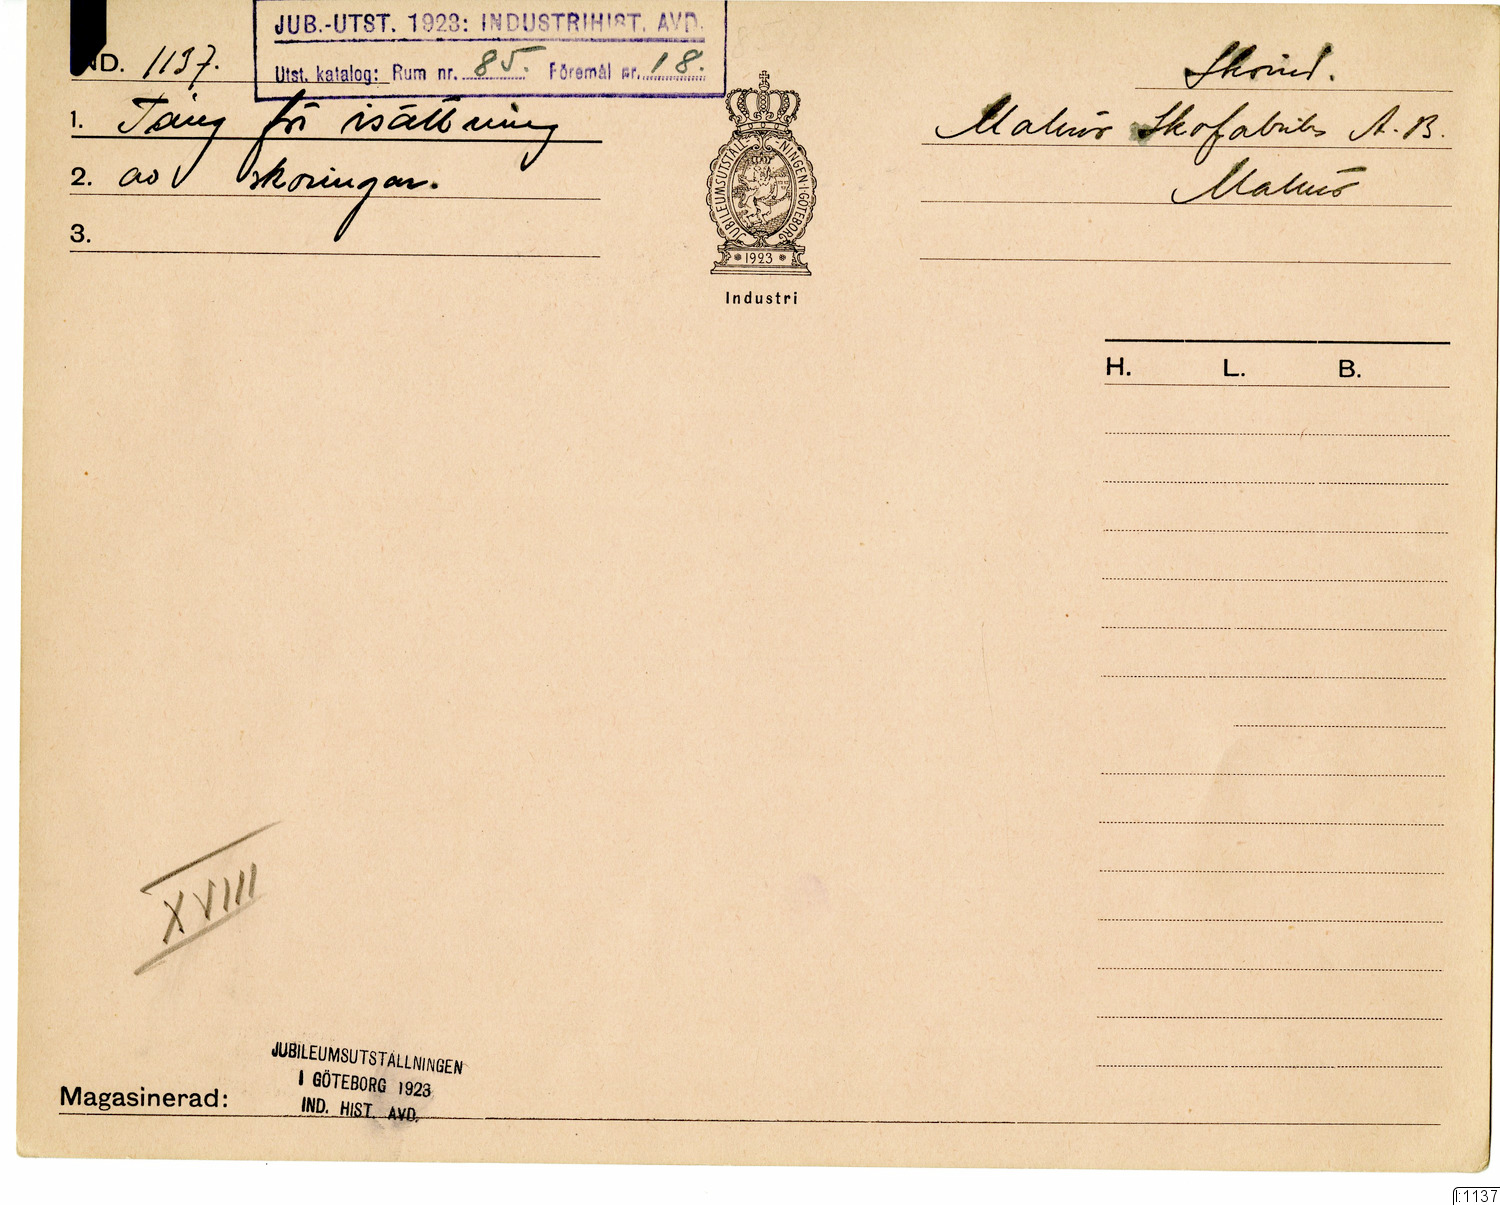 JUB.-UTST. 1923: INDUSTRIHIST. AVD.
Utst. katalog: Rum nr. 85. Föremål nr. 18.
IND. 1137.
1. Tång för isättning
2. av skoringar.
3.
JUBILEUMSUTSTÄLLNINGEN I GÖTEBORG
1923
Industri
Skoind.
Malmö Skofabriks A.-B.
Malmö
H. L. B.
XVIII
JUBILEUMSUTSTÄLLNINGEN
I GÖTEBORG 1923
IND. HIST. AVD.
Magasinerad:
I:1137